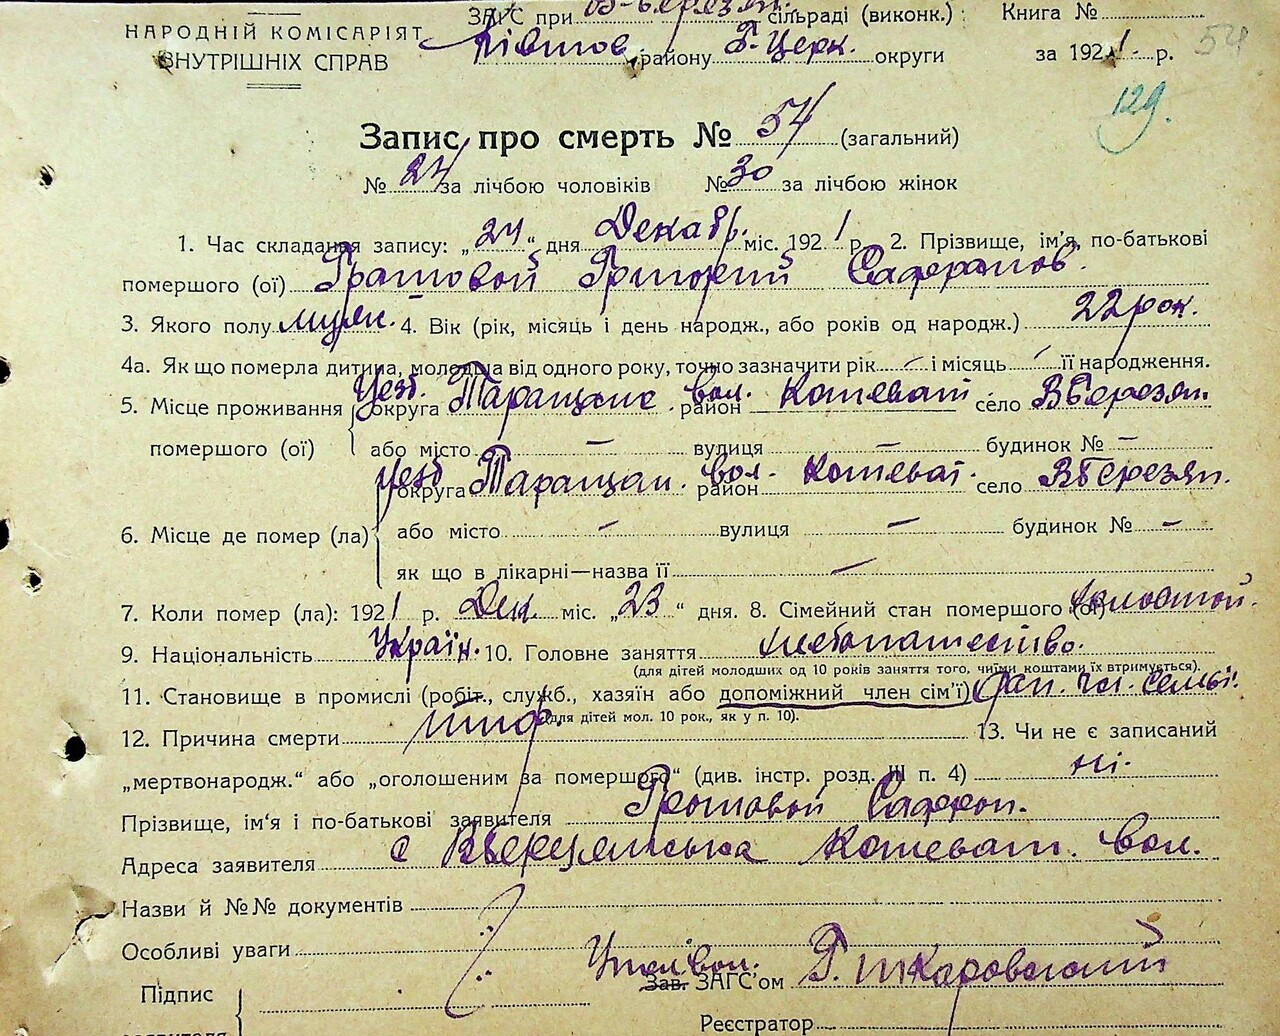 НАРОДНІЙ КОМІСАРІЯТ
ВНУТРІШНІХ СПРАВ
ЗАГС при сільраді (виконк.)
району Б-Церк. округи
Книга №
за 1921 р.
54
129.
Запис про смерть № 54 (загальний)
№ 24 за лічбою чоловіків № 30 за лічбою жінок
1. Час складання запису: „24“ дня Декабр. міс. 1921 р. 2. Прізвище, ім'я, по-батькові
помершого (ої) Грошовой Григорий
3. Якого полу муж. 4. Вік (рік, місяць і день народж., або років од народж.) 22 рок.
4а. Як що померла дитина, молодша від одного року, точно зазначити рік — і місяць — її народження.
5. Місце проживання Уезд. округа Таращанс. вол. район Кошеват. село ВБерезян.
помершого (ої) або місто — вулиця — будинок № —
Уезд округа Таращан. вол. район Кошеват. село ВБерезян.
6. Місце де помер (ла) або місто — вулиця — будинок № —
як що в лікарні—назва її —
7. Коли помер (ла): 1921 р. Дек. міс. „23“ дня. 8. Сімейний стан помершого (ої) холостой.
9. Національність Україн. 10. Головне заняття хлебопашество.
(для дітей молодших од 10 років заняття того, чиїми коштами їх втримується).
11. Становище в промислі (робіт., служб., хазяїн або допоміжний член сім'ї) чл. семьї.
(для дітей мол. 10 рок., як у п. 10).
12. Причина смерти тиф. 13. Чи не є записаний
„мертвонародж.“ або „оголошеним за помершого“ (див. інстр. розд. III п. 4) ні.
Прізвище, ім'я і по-батькові заявителя Грошовой Сафрон.
Адреса заявителя с Кошеват. вол.
Назви й №№ документів
Особливі уваги
Підпис
заявителя
Зав. ЗАГС'ом
Реєстратор